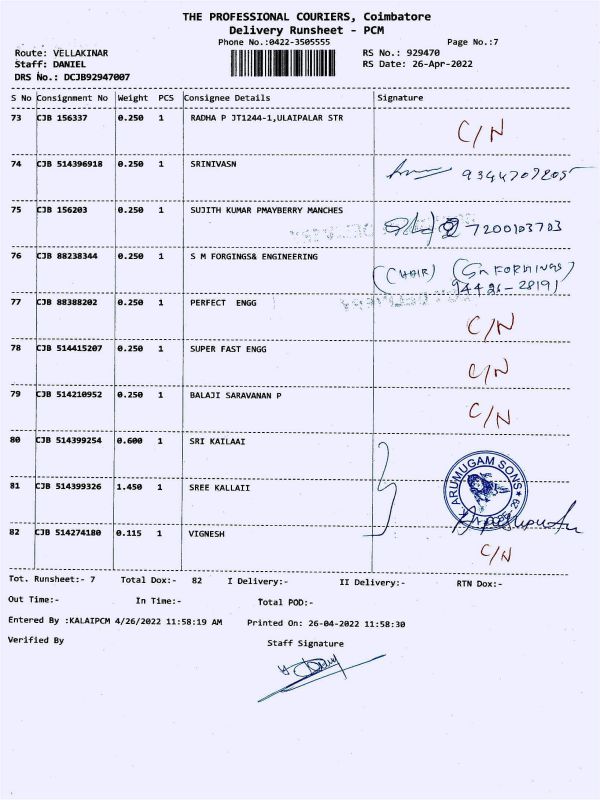 THE PROFESSIONAL COURIERS, Coimbatore
Delivery Runsheet - PCM
Phone No.:0422-3505555 Page No.:7
Route: VELLAKINAR RS No.: 929470
Staff: DANIEL RS Date: 26-Apr-2022
DRS No.: DCJB92947007
S No Consignment No Weight PCS Consignee Details Signature
73 CJB 156337 0.250 1 RADHA P JT1244-1,ULAIPALAR STR C/N
74 CJB 514396918 0.250 1 SRINIVASN
75 CJB 156203 0.250 1 SUJITH KUMAR PMAYBERRY MANCHES 7200103703
76 CJB 88238344 0.250 1 S M FORGINGS& ENGINEERING
94426-28191
77 CJB 88388202 0.250 1 PERFECT ENGG C/N
78 CJB 514415207 0.250 1 SUPER FAST ENGG C/N
79 CJB 514210952 0.250 1 BALAJI SARAVANAN P C/N
80 CJB 514399254 0.600 1 SRI KAILAAI
ARUMUGAM SONS
81 CJB 514399326 1.450 1 SREE KALLAII
82 CJB 514274180 0.115 1 VIGNESH C/N
Tot. Runsheet:- 7 Total Dox:- 82 I Delivery:- II Delivery:- RTN Dox:-
Out Time:- In Time:- Total POD:-
Entered By :KALAIPCM 4/26/2022 11:58:19 AM Printed On: 26-04-2022 11:58:30
Verified By Staff Signature